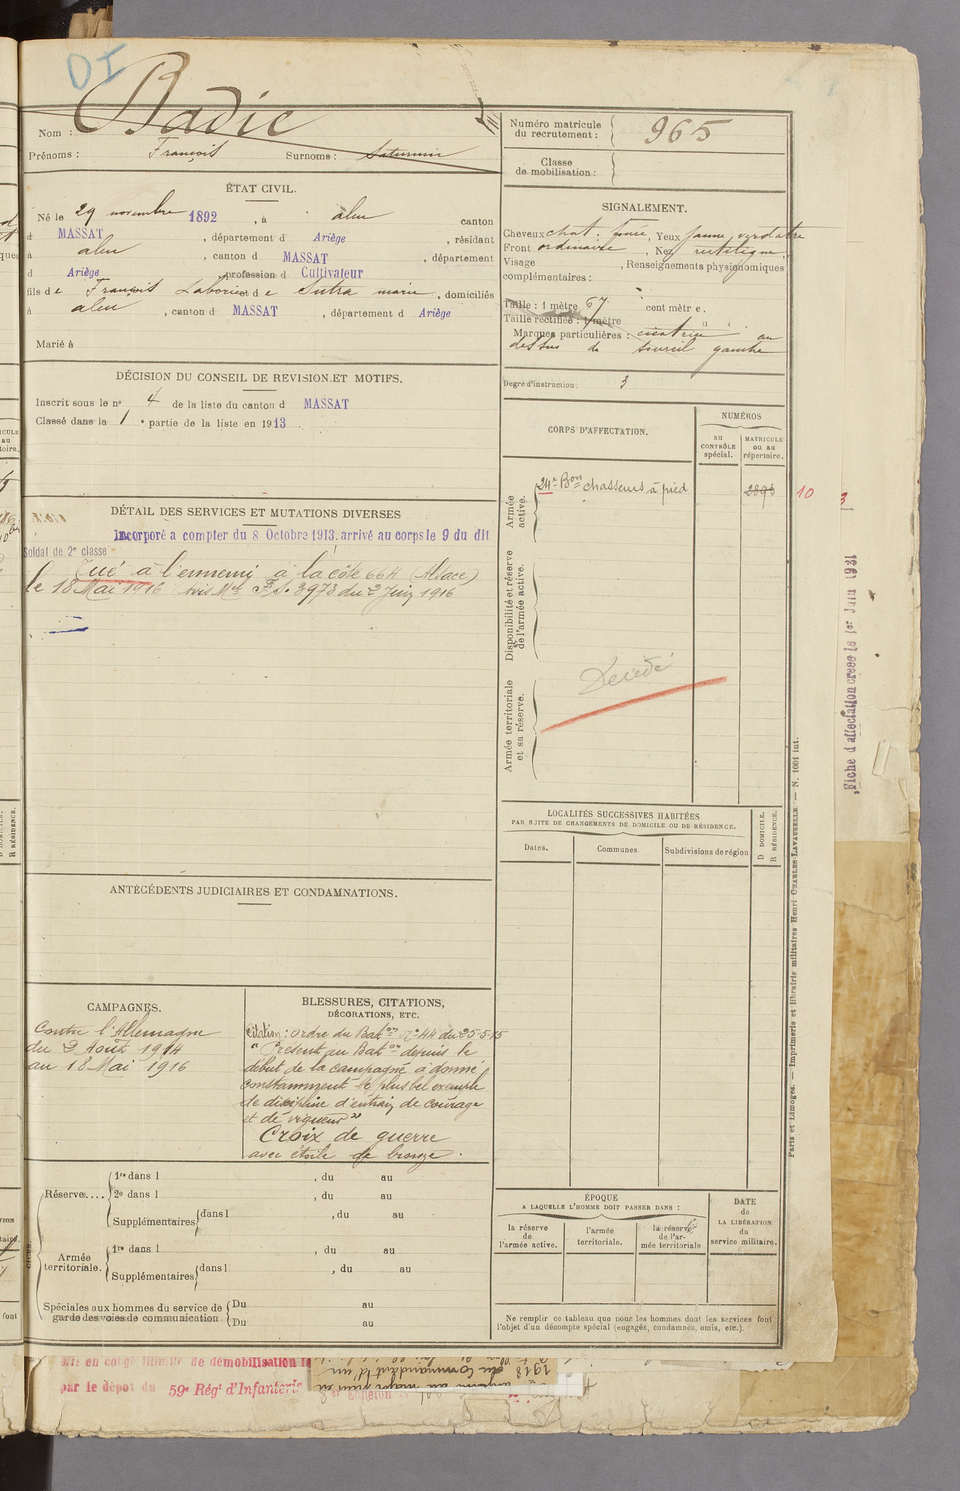 DI
Nom : Badie
Prénoms : François Surnoms : Saturnin
Numéro matricule du recrutement : 965
Classe de mobilisation :
ÉTAT CIVIL.
Né le 29 novembre 1892, à aleu canton
d MASSAT, département d Ariège, résidant
à aleu, canton d MASSAT, département
d Ariège profession d Cultivateur
fils de François Laborie et de Sutra marie, domiciliés
à aleu, canton d MASSAT, département d Ariège
Marié à
SIGNALEMENT.
Cheveux chat. , Yeux jaune verdatre
Front ordinaire, Nez rectiligne
Visage , Renseignements physionomiques
complémentaires :
Taille : 1 mètre 67 centimètre.
Taille rectifiée : 1 mètre
Marques particulières : cicatrice au
dessus du sourcil gauche
Degré d'instruction : 3
DÉCISION DU CONSEIL DE REVISION ET MOTIFS.
Inscrit sous le n° 4 de la liste du canton d MASSAT
Classé dans la 1 e partie de la liste en 1913
CORPS D'AFFECTATION.
NUMÉROS
au CONTRÔLE spécial.
MATRICULE ou au répertoire.
Armée active.
24e Bon chasseurs à pied 2898
10 3
Disponibilité et réserve de l'armée active.
Armée territoriale et sa réserve.
Décédé
DÉTAIL DES SERVICES ET MUTATIONS DIVERSES
Incorporé a compter du 8 Octobre 1913. arrivé au corps le 9 du dit
Soldat de 2e classe
Tué à l'ennemi à la côte 664 (Alsace)
le 18 Mai 1916 avis Mel F.S. 3973 du 2 Juin 1916
Fiche d'affectation créée le 1er Juin 1921
LOCALITÉS SUCCESSIVES HABITÉES
PAR SUITE DE CHANGEMENTS DE DOMICILE OU DE RÉSIDENCE.
Dates. Communes. Subdivisions de région
D DOMICILE.
R RÉSIDENCE.
ANTÉCÉDENTS JUDICIAIRES ET CONDAMNATIONS.
CAMPAGNES.
Contre l'Allemagne
du 2 Août 1914
au 18 Mai 1916
BLESSURES, CITATIONS,
DÉCORATIONS, ETC.
Citation : ordre du Baton n°44 du 25-5-15
" Présent au Baton depuis le
début de la campagne a donné
constamment le plus bel exemple
de discipline d'entrain de courage
et de vigueur "
Croix de guerre
avec étoile de bronze.
Réserve....
1re dans l , du au
2e dans l , du au
Supplémentaires dans l , du au
Armée territoriale.
1re dans l , du au
Supplémentaires dans l , du au
Spéciales aux hommes du service de garde des voies de communication.
Du au
Du au
ÉPOQUE
A LAQUELLE L'HOMME DOIT PASSER DANS :
la réserve de l'armée active.
l'armée territoriale.
la réserve de l'armée territoriale
DATE de LA LIBÉRATION du service militaire.
Ne remplir ce tableau que pour les hommes dont les services font
l'objet d'un décompte spécial (engagés, condamnés, omis, etc.).
Paris et Limoges. — Imprimerie et librairie militaires Henri CHARLES-LAVAUZELLE — N. 1001 int.
en congé illimité de démobilisation le
par le dépôt du 59e Régt d'Infanterie